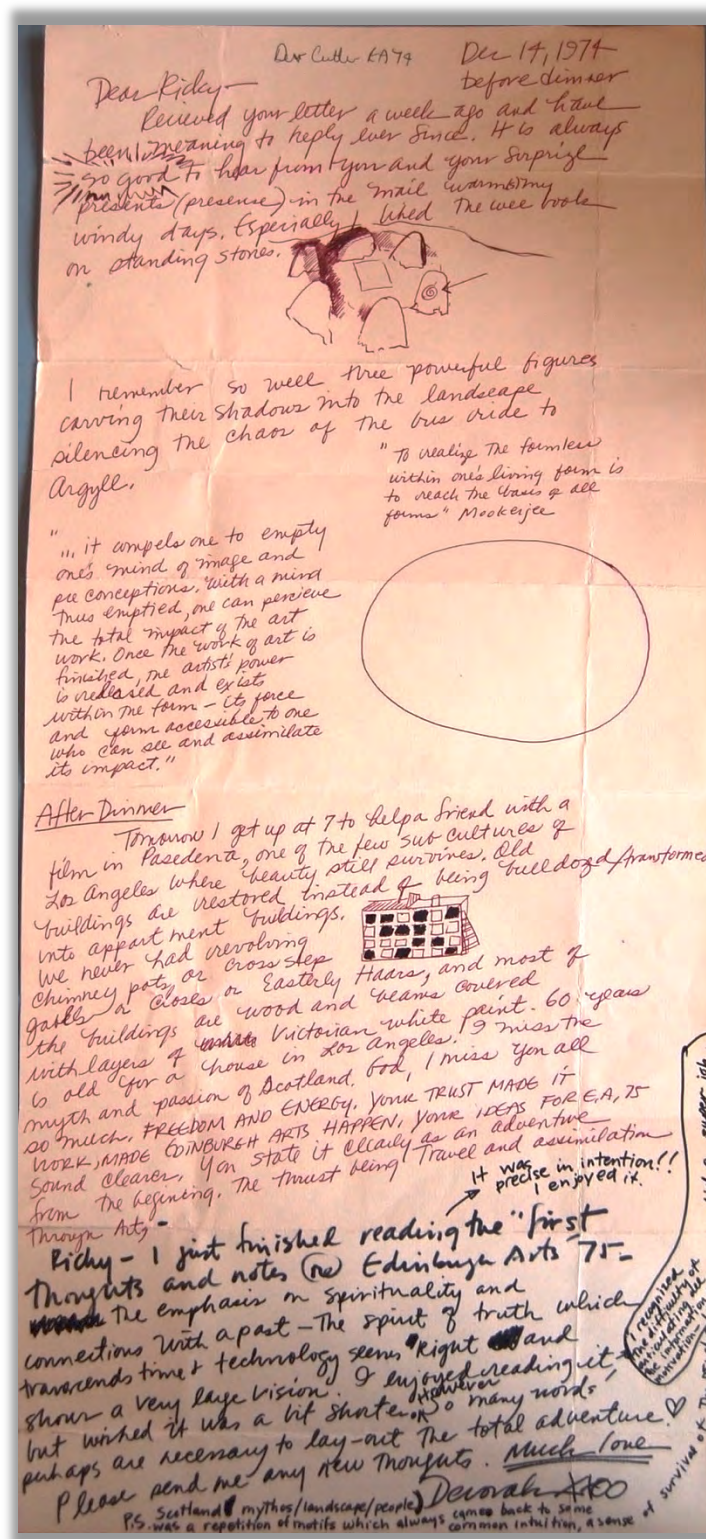 Dev Cutler EA74
Dec 14, 1974
before dinner
Dear Ricky—
Recieved your letter a week ago and have
been meaning to reply ever since. It is always
so good to hear from you and your surprize
presents (presense) in the mail warms my
windy days. Especially I liked the wee book
on standing stones.
I remember so well three powerful figures
carving their shadows into the landscape
silencing the chaos of the bus ride to
Argyll.
"To realize the formless
within one's living form is
to reach the basis of all
forms" Mookerjee
"... it compels one to empty
one's mind of image and
pre conceptions. With a mind
thus emptied, one can percieve
the total impact of the art
work. Once the work of art is
finished, the artist's power
is released and exists
within the form — its force
and form accessible to one
who can see and assimilate
its impact."
After Dinner
Tomorrow I get up at 7 to help a friend with a
film in Pasedena, one of the few sub cultures of
Los Angeles where beauty still survives. Old
buildings are restored instead of being bulldozed/transformed
into appartment buildings.
We never had revolving
chimney pots, or cross step
gables or closes or Easterly Haars, and most of
the buildings are wood and beams covered
with layers of Victorian white paint. 60 years
is old for a house in Los Angeles. I miss the
myth and passion of Scotland. God, I miss you all
so much. FREEDOM AND ENERGY. YOUR TRUST MADE IT
WORK, MADE EDINBURGH ARTS HAPPEN, YOUR IDEAS FOR E.A, 75
Sound clearer. You state it clearly as an adventure
from the begining. The thrust being Travel and assimilation
through Arts—
It was
precise in intention!!
I enjoyed it.
Richy — I just finished reading the "first
thoughts and notes (re) Edinburgh Arts '75—
The emphasis on spirituality and
connections with a past — The spirit of truth which
transcends time & technology seems "Right and
shows a very large vision. I enjoyed reading it,
but wished it was a bit shorter However so many words
perhaps are necessary to lay-out the total adventure.
Please send me any new thoughts. Much love
Devorah XXOO
P.S. Scotland (mythos/landscape/people)
was a repetition of motifs which always came back to some
common intuition, a sense of survival of
I recognized
the difficulty of
articulating all
the information
super job